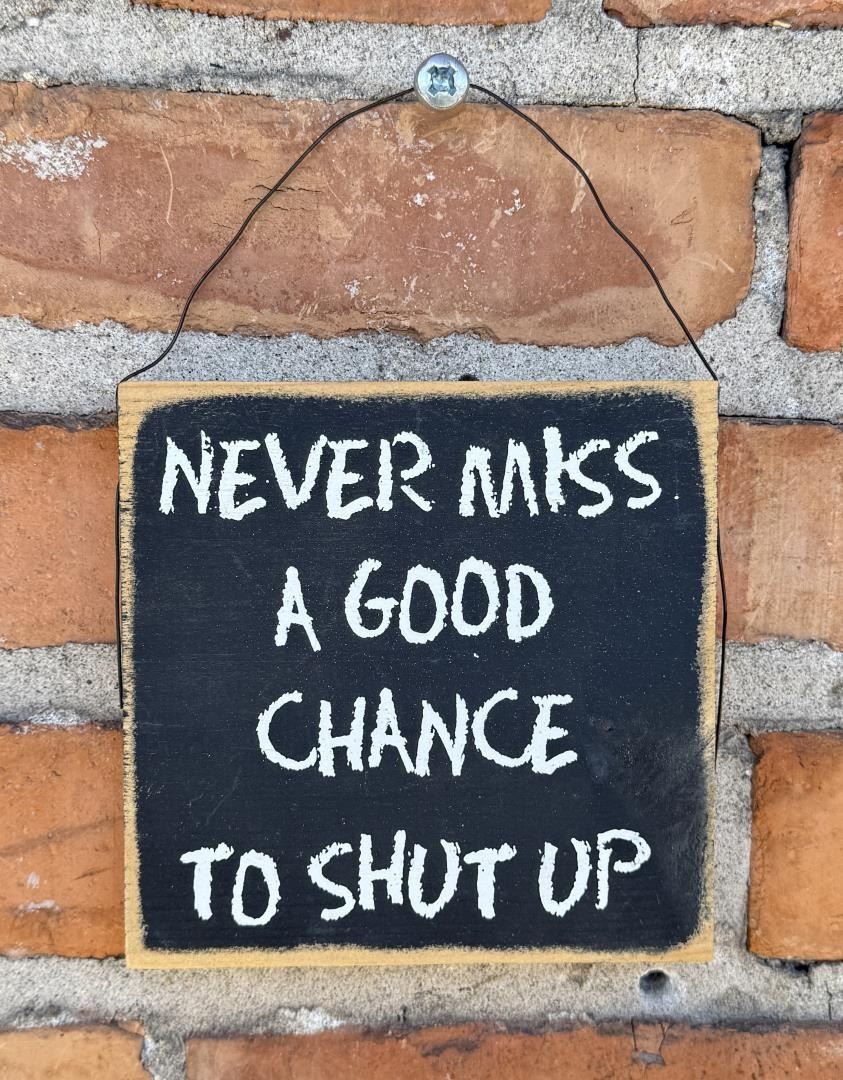 NEVER MISS
A GOOD
CHANCE
TO SHUT UP